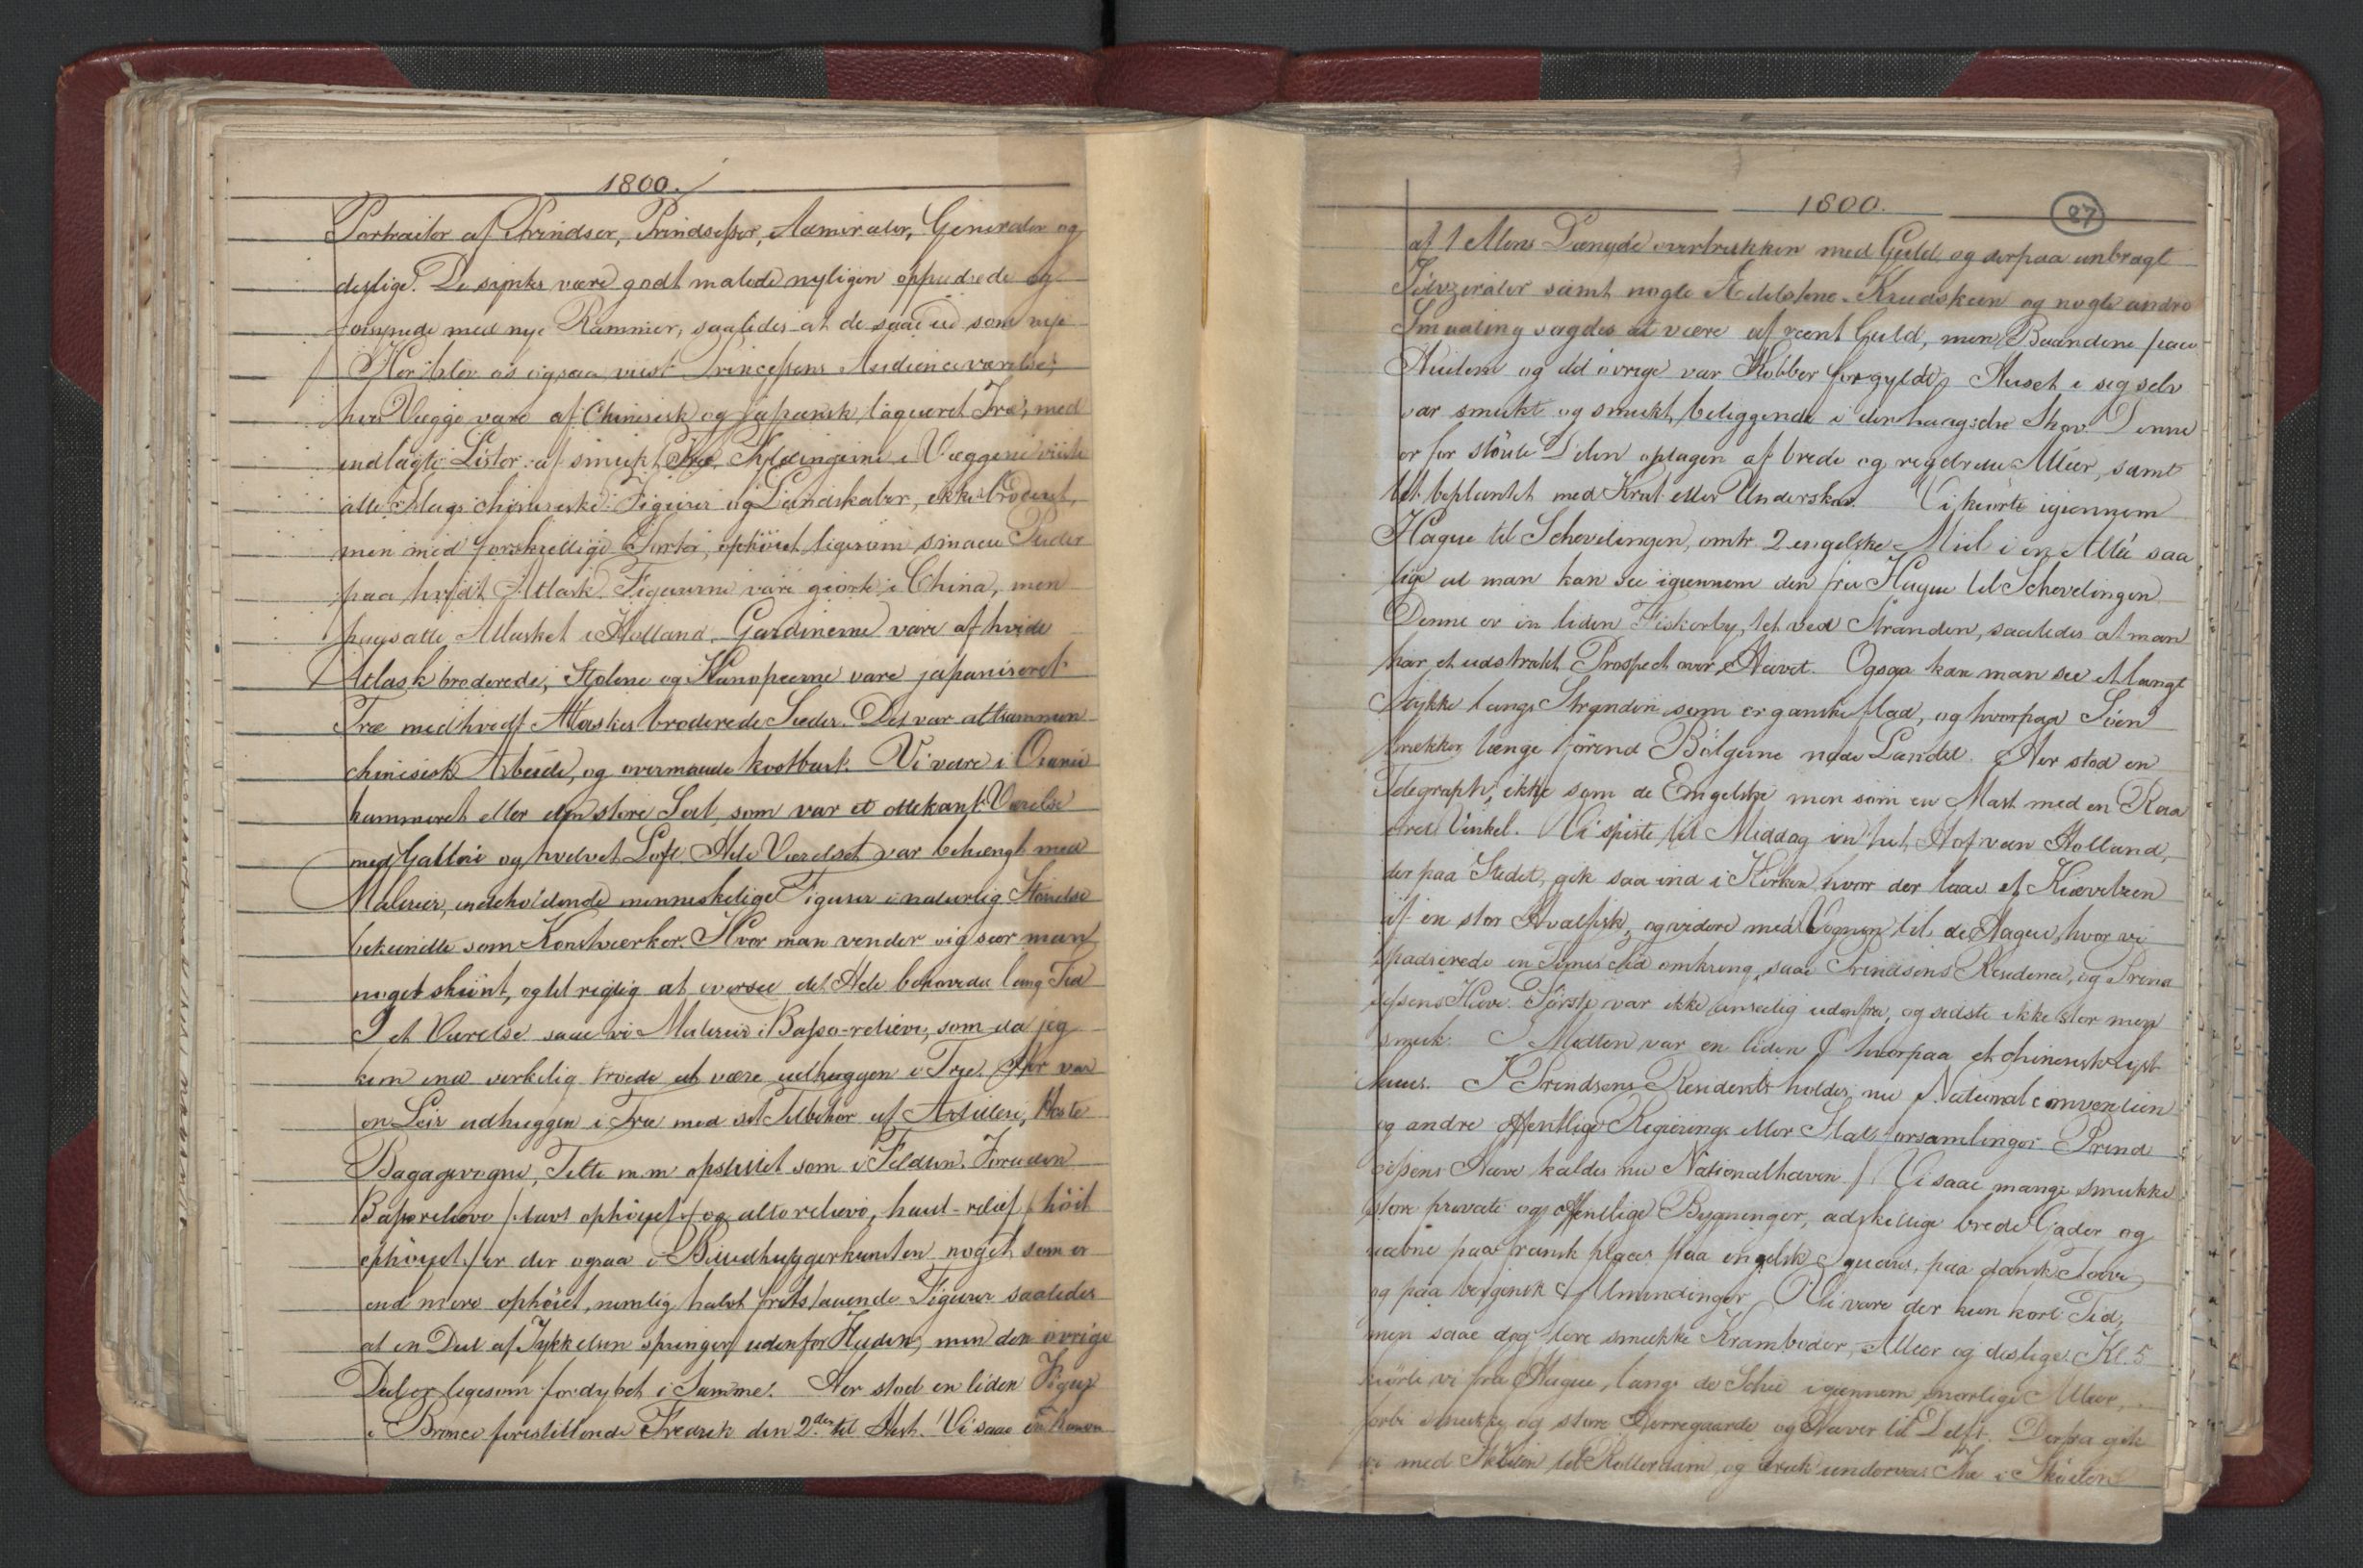 1800.
Portraiter af Prindser, Prindsesser, Admiraler, Generaler og
deslige. De syntes være godt malede nyligen oppudsede og
forsynede med nye Rammer, saaledes at de saae ud som nye
Her blev os ogsaa viist Princessens Audienceværelse,
hvis Vægge vare af Chinesisk og japansk laqueret Træ, med
indlagte Lister af smukt Træ. Fyldingerne i Væggene viiste
alle Slags chinesiske Figurer og Landskaber, ikke broderet,
men med forskiellige Farter, ophöiet ligesom smaae Puder
paa hvidt Atlask. Figurerne vare giorte i China, men
paasatte Atlasket i Holland. Gardinerne vare af hvide
Atlask broderede, Stolene og Kanapeerne vare japaniseret
Træ med hvidt Atlaskes broderede Sæder. Det var altsammen
chinesisk Arbeide, og overmaade kostbart. Vi vare i Oranie
kammeret eller den store Sal, som var et ottekant Værelse
med Gallerie og hvelvet Loft. Hele Værelset var behængt med
Malerier, indeholdende menneskelige Figurer i naturlig Störrelse
bekiendte som Konstværker. Hvor man vender sig seer man
noget skiönt, og til rigtig at oversee det Hele behövedes lang Tid
I et Værelse saae vi Malerier i Basso-relievo, som da jeg
kom ind verkelig troede at være udhuggen i Træ. Her var
en Leir udhuggen i Træ med sit Tilbehör af Artilleri, Heste
Bagagevogne, Telte m.m opstillet som i Felden. Foruden
Bassorelievo /: lavt ophöyet :/ og altorelievo, haut-relief /: höit
ophöyet :/ er der ogsaa i Billedhuggerkunsten noget som er
end mere ophöiet, nemlig halvt fritstaaende Figurer saaledes
at en Deel af Tykkelsen springer udenfor Fladen, men den övrige
Deel er ligesom fordybet i Samme. Her stod en liden Figur
i Bronce forestillende Fredrik den 2den til Hest. Vi saae en Kanon
1800.
27
af 1 Alens Længde overtrukken med Guld, og derpaa anbragt
Sölvzirater samt nogle Ædelstene. Krudskeen og nogle andre
Smaating sagdes at være af reent Guld, men Baandene paa
Hiulene og det övrige var Kobber forgyldt. Huset i sig selv
var smukt og smukt beliggende i den haagske Skov. Denne
er for störste Delen optagen af brede og regelrette Alleer, samt
tæt beplantet med Krat eller Underskov. Vi kiörte igiennem
Hague til Schevelingen, omtr. 2 engelske Miil i en Allé saa
lige at man kan see igiennem den fra Hague til Schevelingen
Denne er en liden Fiskerby, tet ved Stranden, saaledes at man
har et udstrakt Prospect over Havet. Ogsaa kan man see et langt
Stykke langs Stranden som er ganske flad, og hvorpaa Söen
brækker længe förend Bölgerne naae Landet. Her stod en
Telegraph, ikke som de Engelske men som en Mast med en Raa
Vinkel. Vi spiste til Middag in het Hof van Holland,
der paa Stedet, gik saa ind i Kirken hvor der laae et Kiævebeen
af en stor Hvalfisk, og videre med Vognen til de Hague, hvor vi
spadserede en Times Tid omkring, saae Prindsens Residence, og Prind
sessens Have. Förste var ikke anseelig udenfra, og sidste ikke stor men
smuk. I Midten var en liden Ö hvorpaa et chinesisk Lyst
huus. I Prindsens Residents holdes nu Nationalconvention
og andre offentlige Regierings eller Stats forsamlinger. Prind
sessens Have kaldes nu Nationalhaven. / Vi saae mange smukke
store private og offentlige Bygninger, adskillige brede Gader og
aabne paa fransk places paa engelsk Squares, paa dansk Torve
og paa bergensk Almindinger. Vi vare der kun kort Tid,
men saae dog flere smukke Kramboder, Alleer og deslige. Kl. 5
kiörte vi fra Hague, langs de Schie igiennem snorlige Alleer,
forbi smukke og store Herregaarde og Haver til Delft. Derfra gik
vi med Skuiten til Rotterdam, og drak underveis The i Skuiten